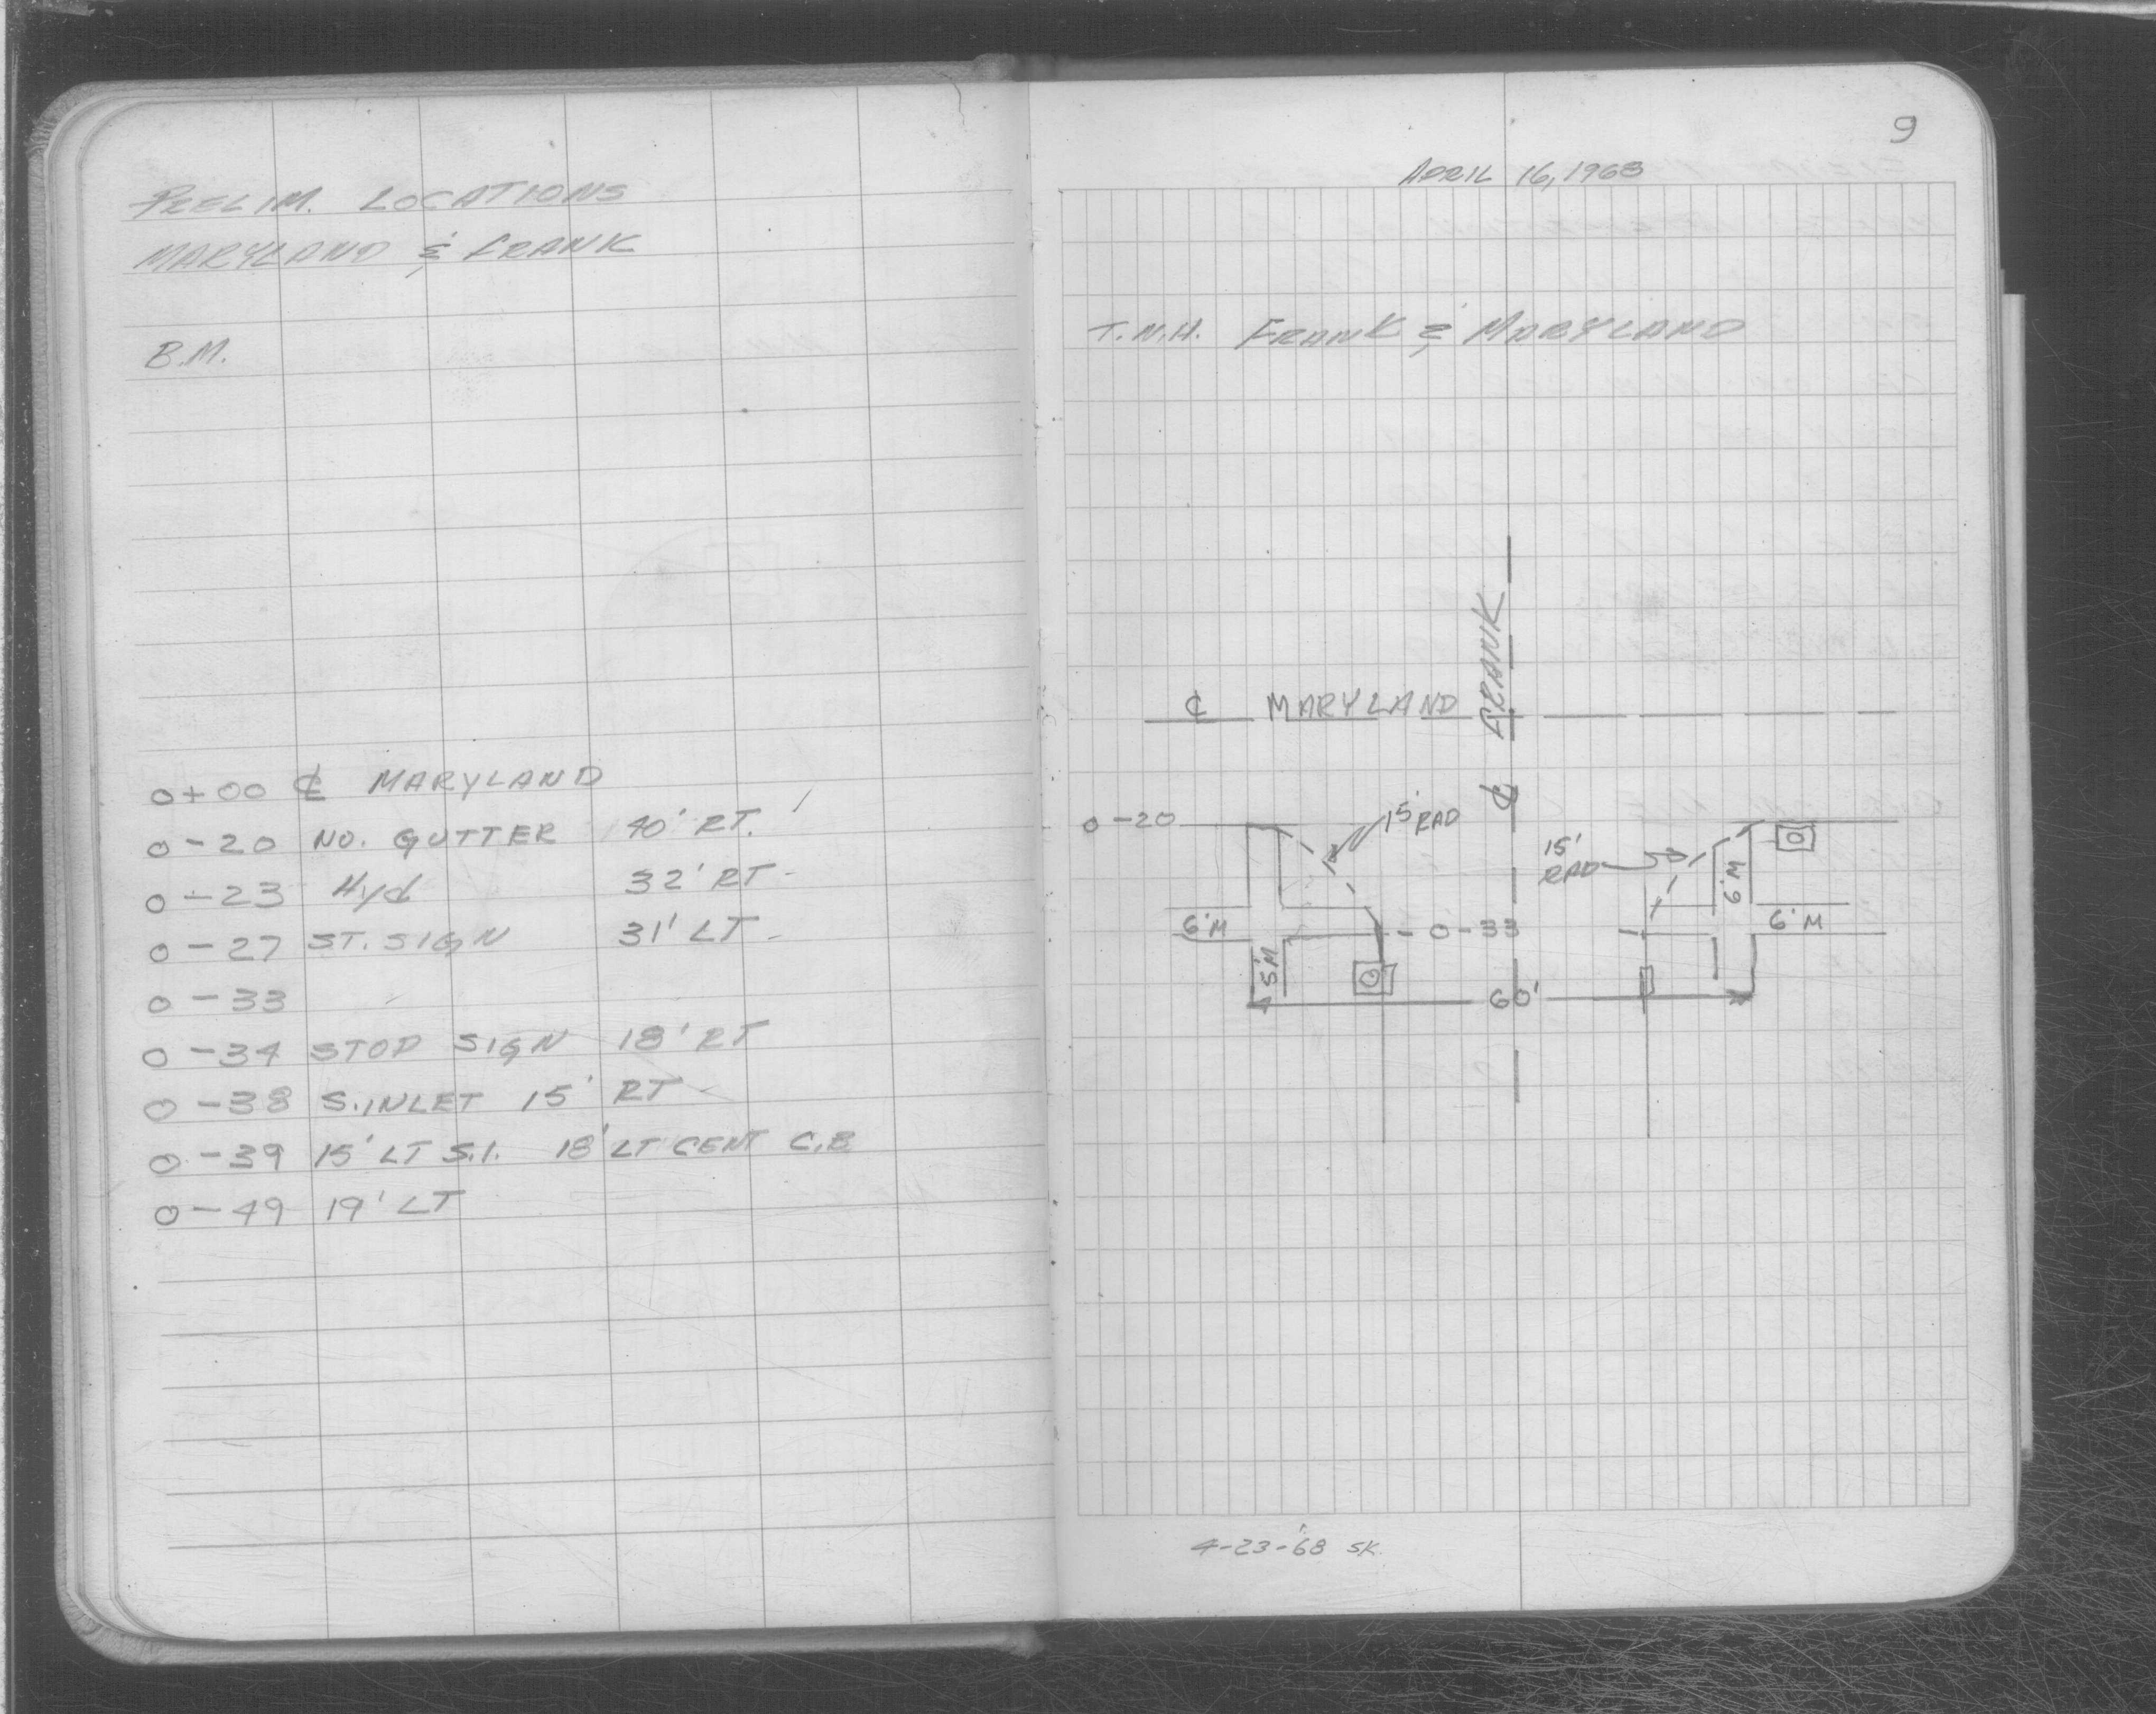 PRELIM. LOCATIONS
MARYLAND & FRANK
B.M.
0+00 ℄ MARYLAND
0-20 NO. GUTTER 40' RT.
0-23 Hyd 32' RT-
0-27 ST. SIGN 31' LT-
0-33
0-34 STOP SIGN 18' RT
0-38 S. INLET 15' RT
0-39 15' LT S.I. 18' LT CENT C.B
0-49 19' LT
9
APRIL 16, 1968
T.N.H. FRANK & MARYLAND
℄ FRANK
℄ MARYLAND
0-20
15' RAD
15'
RAD
6'M
6'M
0-33
6'M
5'M
60'
4-23-'68 SK.